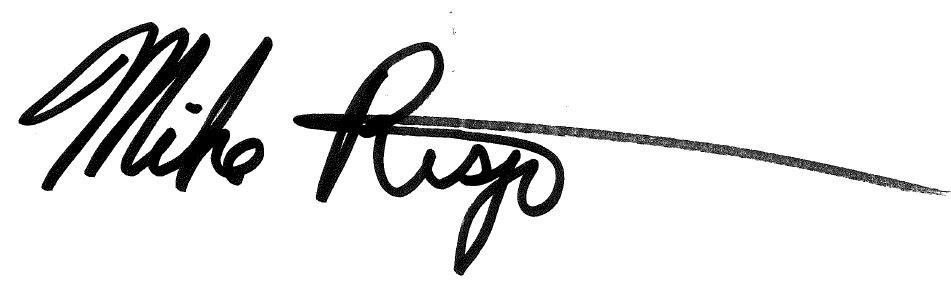 Mike Rispo